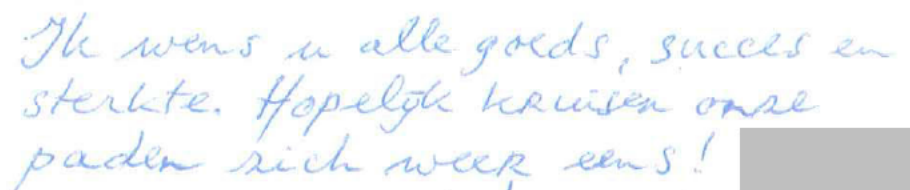 Ik wens u alle goeds, succes en
sterkte. Hopelijk kruisen onze
paden zich weer eens!